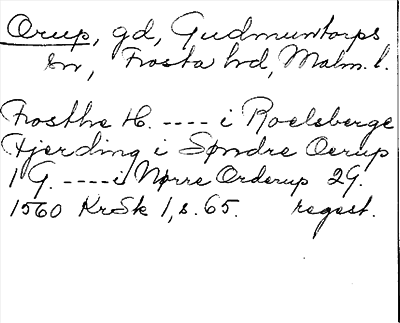 Orup, gd, Gudmuntorps
sn, Frosta hd, Malm. l.
Frosthe H. ---- i Roelsberge
Fjerding i Søndre Oerup
1 G. ---- i Nørre Orderup 2G.
1560 KrSk 1, s. 65. regest.